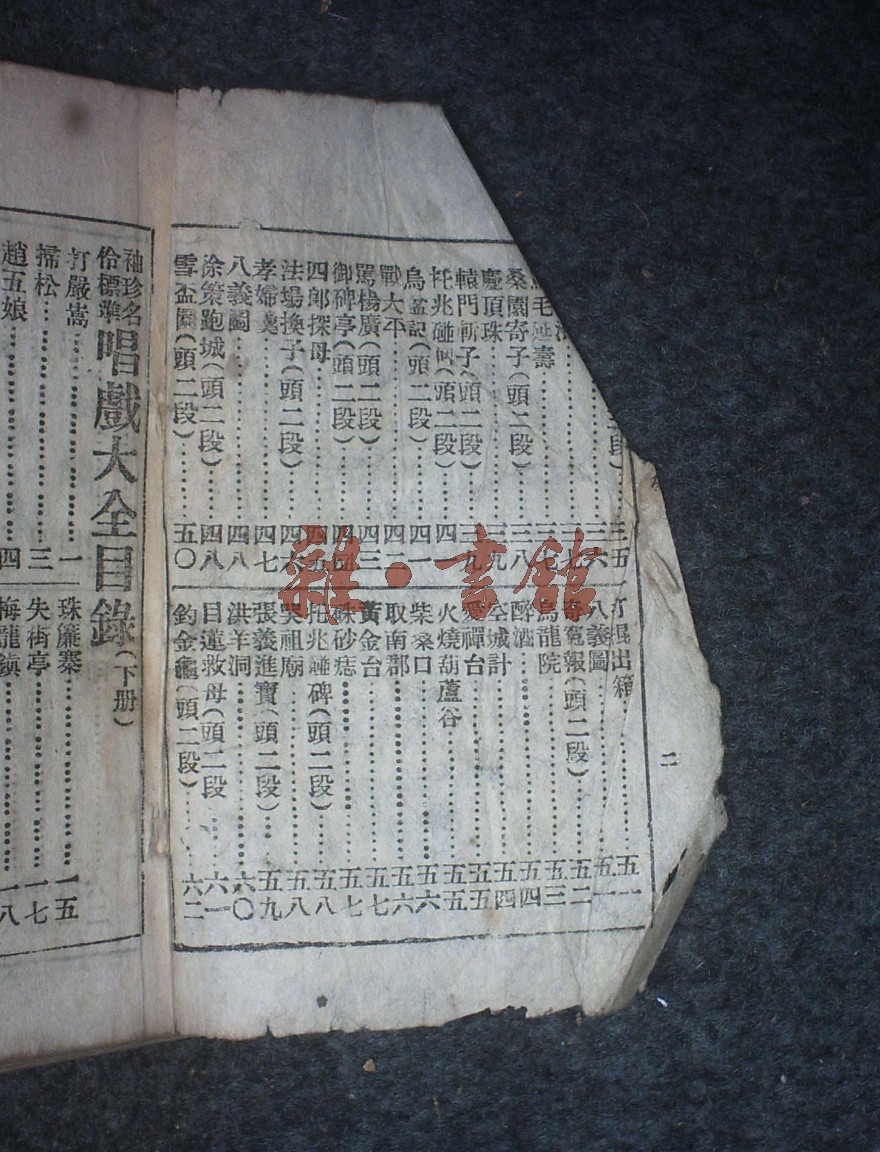 二段）三五
三六
毛延壽三七
桑園寄子（頭二段）三八
慶頂珠三九
轅門斬子（頭二段）三九
托兆碰碑（頭二段）四
烏盆記（頭二段）四一
戰太平四二
罵楊廣（頭二段）四三
御碑亭（頭二段）四四
四郎探母四五
法塲換子（頭二段）四六
孝婦羹四七
八義圖四八
徐策跑城（頭二段）四八
雪盃圓（頭二段）五〇
打棍出箱五一
八義圖五一
奇冤報（頭二段）五二
烏龍院五三
醉酒五四
空城計五四
愛禪台五五
火燒葫蘆谷五五
柴桑口五六
取南郡五六
黃金台五七
硃砂痣五七
托兆碰碑（頭二段）五八
哭祖廟五八
張義進寶（頭二段）五九
洪羊洞六〇
目蓮救母（頭二段）六一
釣金龜（頭二段）六二
二
袖珍名伶標準唱戲大全目錄（下册）
打嚴嵩一
掃松三
趙五娘四
珠簾寨一五
失街亭一七
梅龍鎮一八
雜·書館